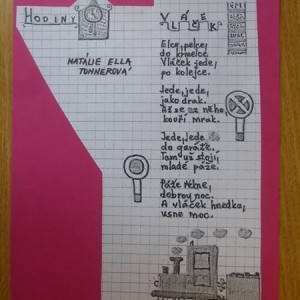 HODINY
NATÁLIE ELLA
TONNEROVÁ
VLÁČEK
do komelce.
Vláček jede,
po kolejce.
Jede, jede,
jako drak.
Až se z něho,
kouří mrak.
Jede, jede
do garáže.
Tam už stojí,
mladé páže.
Páže řekne,
dobrou noc.
A vláček hnedka,
usne moc.